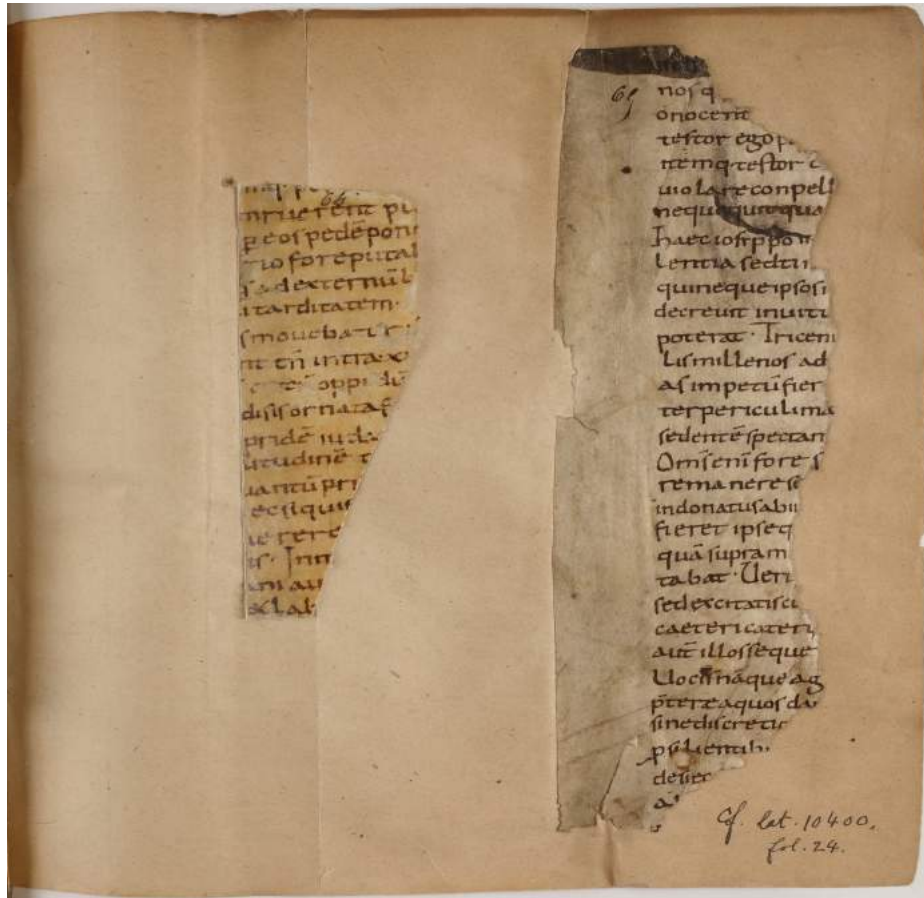 66
inruerent pu
peos pedē pon
tio foreputal
s adexternū l
tarditatem.
smouebatur
nt en̄ intra xv
oppidū
disisornataf
pridē iud
litudinē t
uantū pri
ecsiquis
uerere
is. Inn
uni au
exlab
65
nosq
onocent
testor ego p
itemq; testor
uiolare conpell
neque quiequa
haec iosippon
lentia sedtu
quineque ipsosi
decreuit inuiti
poterat. Triceni
lismillenos ad
as impetū fier
terpericulima
sedentē spectan
Omīs enī fore s
remanere sē
indonatusabii
fieret ipseq
quā supram
tabat. Ueri
sedexcitatisci
caetericateri
aut̄ illosseque
Uocēnāque ag
p̄terea quosdā
sinediscretio
psilientib
desier
Cf. lat. 10400.
fol. 24.